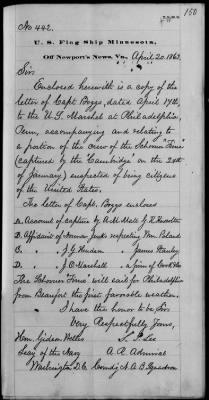 150
No 442.
U. S. Flag Ship Minnesota,
Off Newport's News, Va., April 20. 1863.
Sir:
Enclosed herewith is a copy of the
letter of Capt Boggs, dated April 19th,
to the U.S. Marshal at Philadelphia,
Penn, accompanying and relating to
a portion of the crew of the Schooner "Time"
(captured by the "Cambridge" on the 24th
of January) suspected of being citizens
of the United States.
The letter of Capt. Boggs encloses
A. Account of capture by A.M. Mate J. K.
B. Affidavit of Norman respecting Wm. Poland
C. " J. G. " James Stanley
D. " J. C. Marshall "
The Schooner Time will sail for Philadelphia
from Beaufort the first favorable weather.
I have the honor to be Sir,
Very Respectfully Yours,
Hon. Gideon Welles S. P. Lee
Secy of the Navy A. R. Admiral
Washington D.C. Comdg N. A. B. Squadron